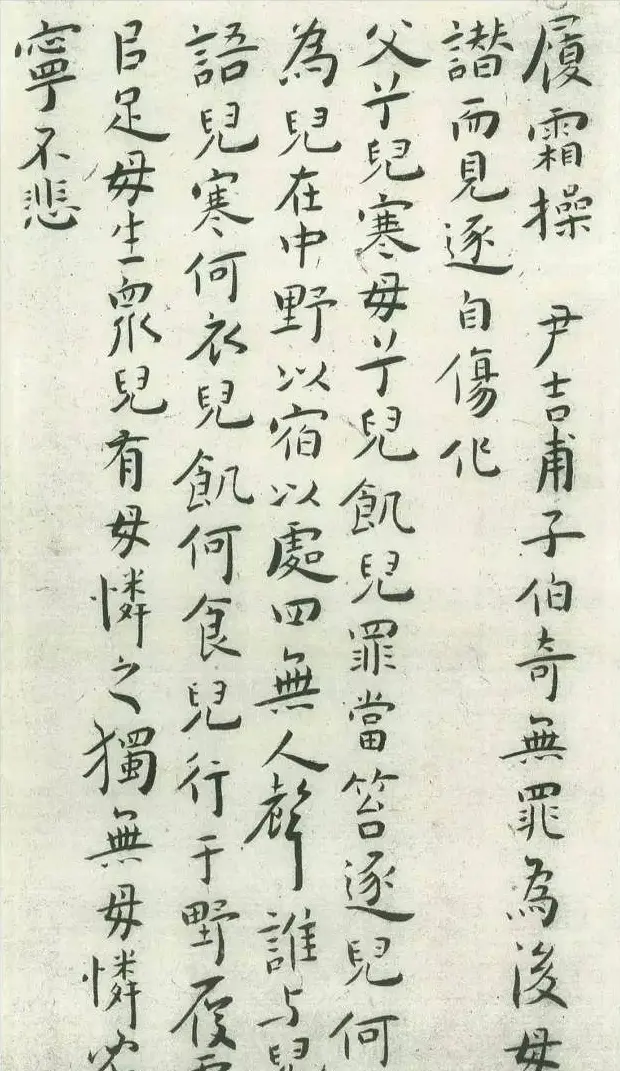 履霜操 尹吉甫子伯奇無罪為後母
譖而見逐自傷作
父兮兒寒母兮兒飢兒罪當笞逐兒何
為兒在中野以宿以處四無人聲誰与兒
語兒寒何衣兒飢何食兒行于野履霜
以足母生衆兒有母憐之獨無母憐兒
寧不悲